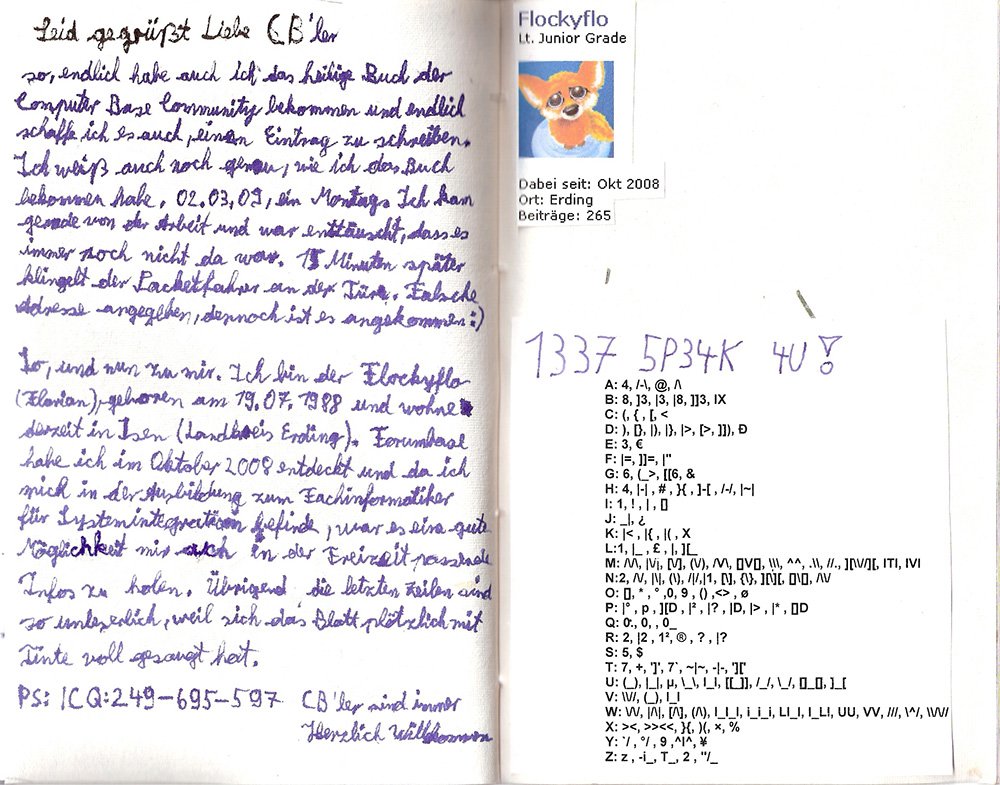 Seid gegrüßt Liebe CB'ler
so, endlich habe auch ich das heilige Buch der
Computer Base Community bekommen und endlich
schaffe ich es auch, einen Eintrag zu schreiben.
Ich weiß auch noch genau, wie ich das Buch
bekommen habe. 02.03.09, ein Montag. Ich kam
gerade von der Arbeit und war enttäuscht, dass es
immer noch nicht da war. 15 Minuten später
klingelt der Packetfahrer an der Türe. Falsche
Adresse angegeben, dennoch ist es angekommen :)
So, und nun zu mir. Ich bin der Flockyflo
(Florian), geboren am 19.07.1988 und wohne
derzeit in Isen (Landkreis Erding). Forumbase
habe ich im Oktober 2008 entdeckt und da ich
mich in der Ausbildung zum Fachinformatiker
für Systemintegration befinde, war es eine gute
Möglichkeit mir auch in der Freizeit passende
Infos zu holen. Übrigend die letzten Zeilen sind
so unleserlich, weil sich das Blatt plötzlich mit
Tinte voll gesaugt hat.
PS: ICQ: 249-695-597 CB'ler sind immer
Herzlich Willkommen
Flockyflo
Lt. Junior Grade
Dabei seit: Okt 2008
Ort: Erding
Beiträge: 265
1337 5P34K 4U!
A: 4, /-\, @, /\
B: 8, ]3, |3, |8, ]]3, IX
C: (, { , [, <
D: ), [}, |), |}, |>, [>, ]]), Ð
E: 3, €
F: |=, ]]=, |"
G: 6, (_>, [[6, &
H: 4, |-| , # , }{ , ]-[ , /-/, |~|
I: 1, ! , | , []
J: _|, ¿
K: |< , |{ , |( , X
L:1, |_ , £ , |, ][_
M: /\/\, |\/|, [\/], (\/), /V\, []V[], \\\, ^^, .\\, //., ][\\//][, ITI, IVI
N:2, /\/, |\|, (\), /|/,|1, [\], {\}, ][\][, []\[], /\\/
O: [], * , ° ,0, 9 , () ,<> , ø
P: |° , p , ][D , |² , |? , |D, |> , |* , []D
Q: 0:, 0, , 0_
R: 2, |2 , 1², ® , ? , |?
S: 5, $
T: 7, +, ']', 7`, ~|~, -|-, ']['
U: (_), |_|, µ, \_\, I_I, [[_]], /_/, \_/, []_[], ]_[
V: \\//, (_), I_I
W: \\/\/, |/\|, [/\], (/\), I_I_I, i_i_i, LI_I, I_L!, UU, VV, ///, \^/, \\/\\/
X: ><, >><<, }{, )(, ×, %
Y: `/ , °/ , 9 ,^I^, ¥
Z: z , -i_, T_, 2 , "/_